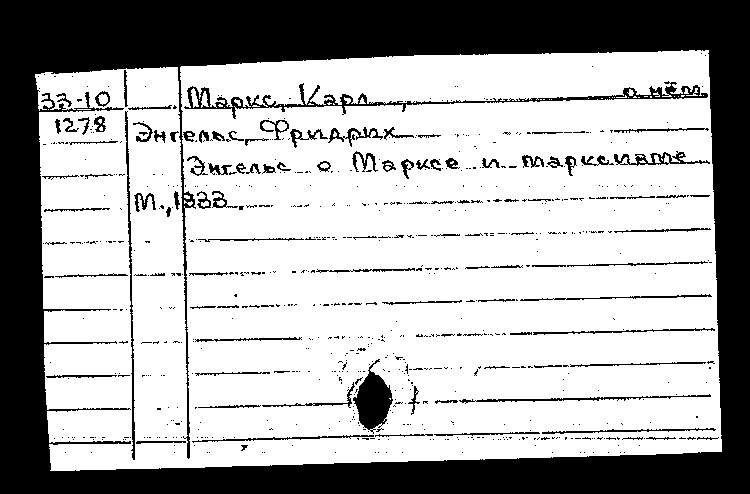 33-10 Маркс, Карл, о нём.
1278 Энгельс, Фридрих
Энгельс о Марксе и марксизме
М., 1933.